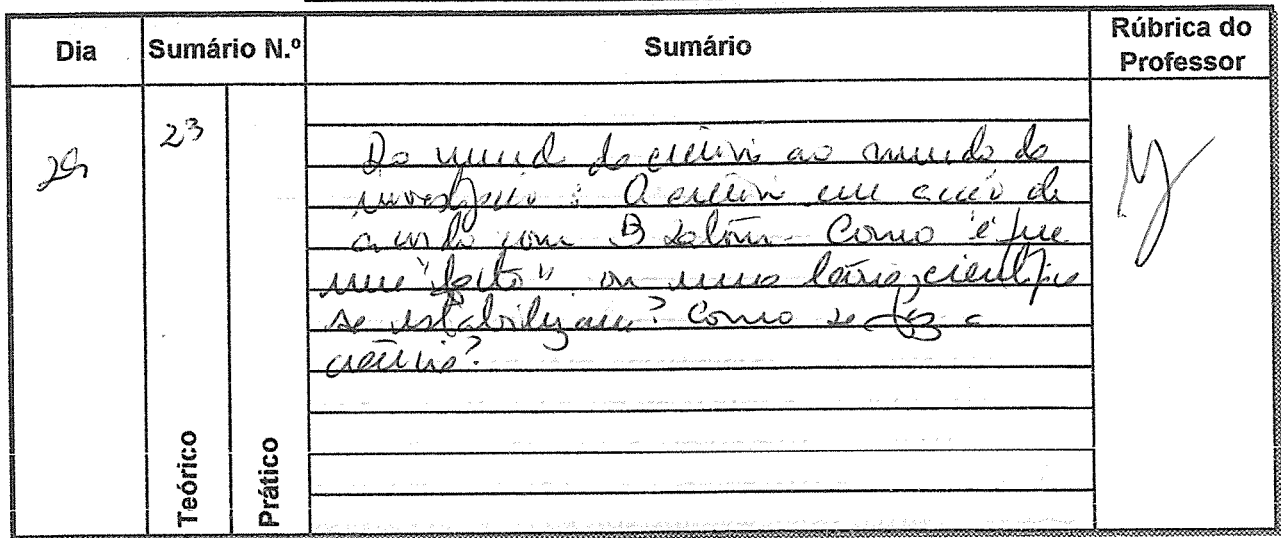 Dia
Sumário N.º
Sumário
Rúbrica do
Professor
29
23
Do mundo da ciência ao mundo da
investigação: A ciência em acção de
acordo com B Latour. Como é que
um "facto" ou uma teoria científica
se estabilizam? Como se faz a
ciência?
Teórico
Prático